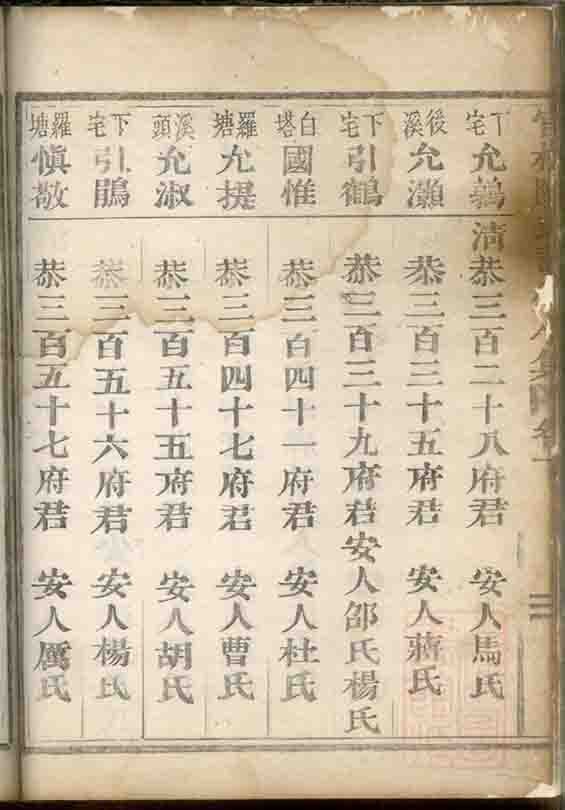 卷一 三
下宅 允 清恭三百二十八府君 安人馬氏
後溪 允瀨 恭三百三十五府君 安人蔣氏
下宅 引鶴 恭三百三十九府君 安人邵氏楊氏
白塔 國惟 恭三百四十一府君 安人杜氏
羅塘 允提 恭三百四十七府君 安人曹氏
溪頭 允淑 恭三百五十五府君 安人胡氏
下宅 引鵑 恭三百五十六府君 安人楊氏
羅塘 慎敬 恭三百五十七府君 安人厲氏